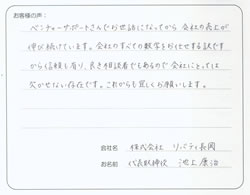 お客様の声：
ベンチャーサポートさんでお世話になってから会社の売上が
伸び続けています。会社のすべての数字をお任せする訳です
から信頼も有り、良き相談者でもあるので会社にとっては
欠かせない存在です。これからも宜しくお願いします。
会社名 株式会社 リバティ長岡
お名前 代表取締役 池上康治